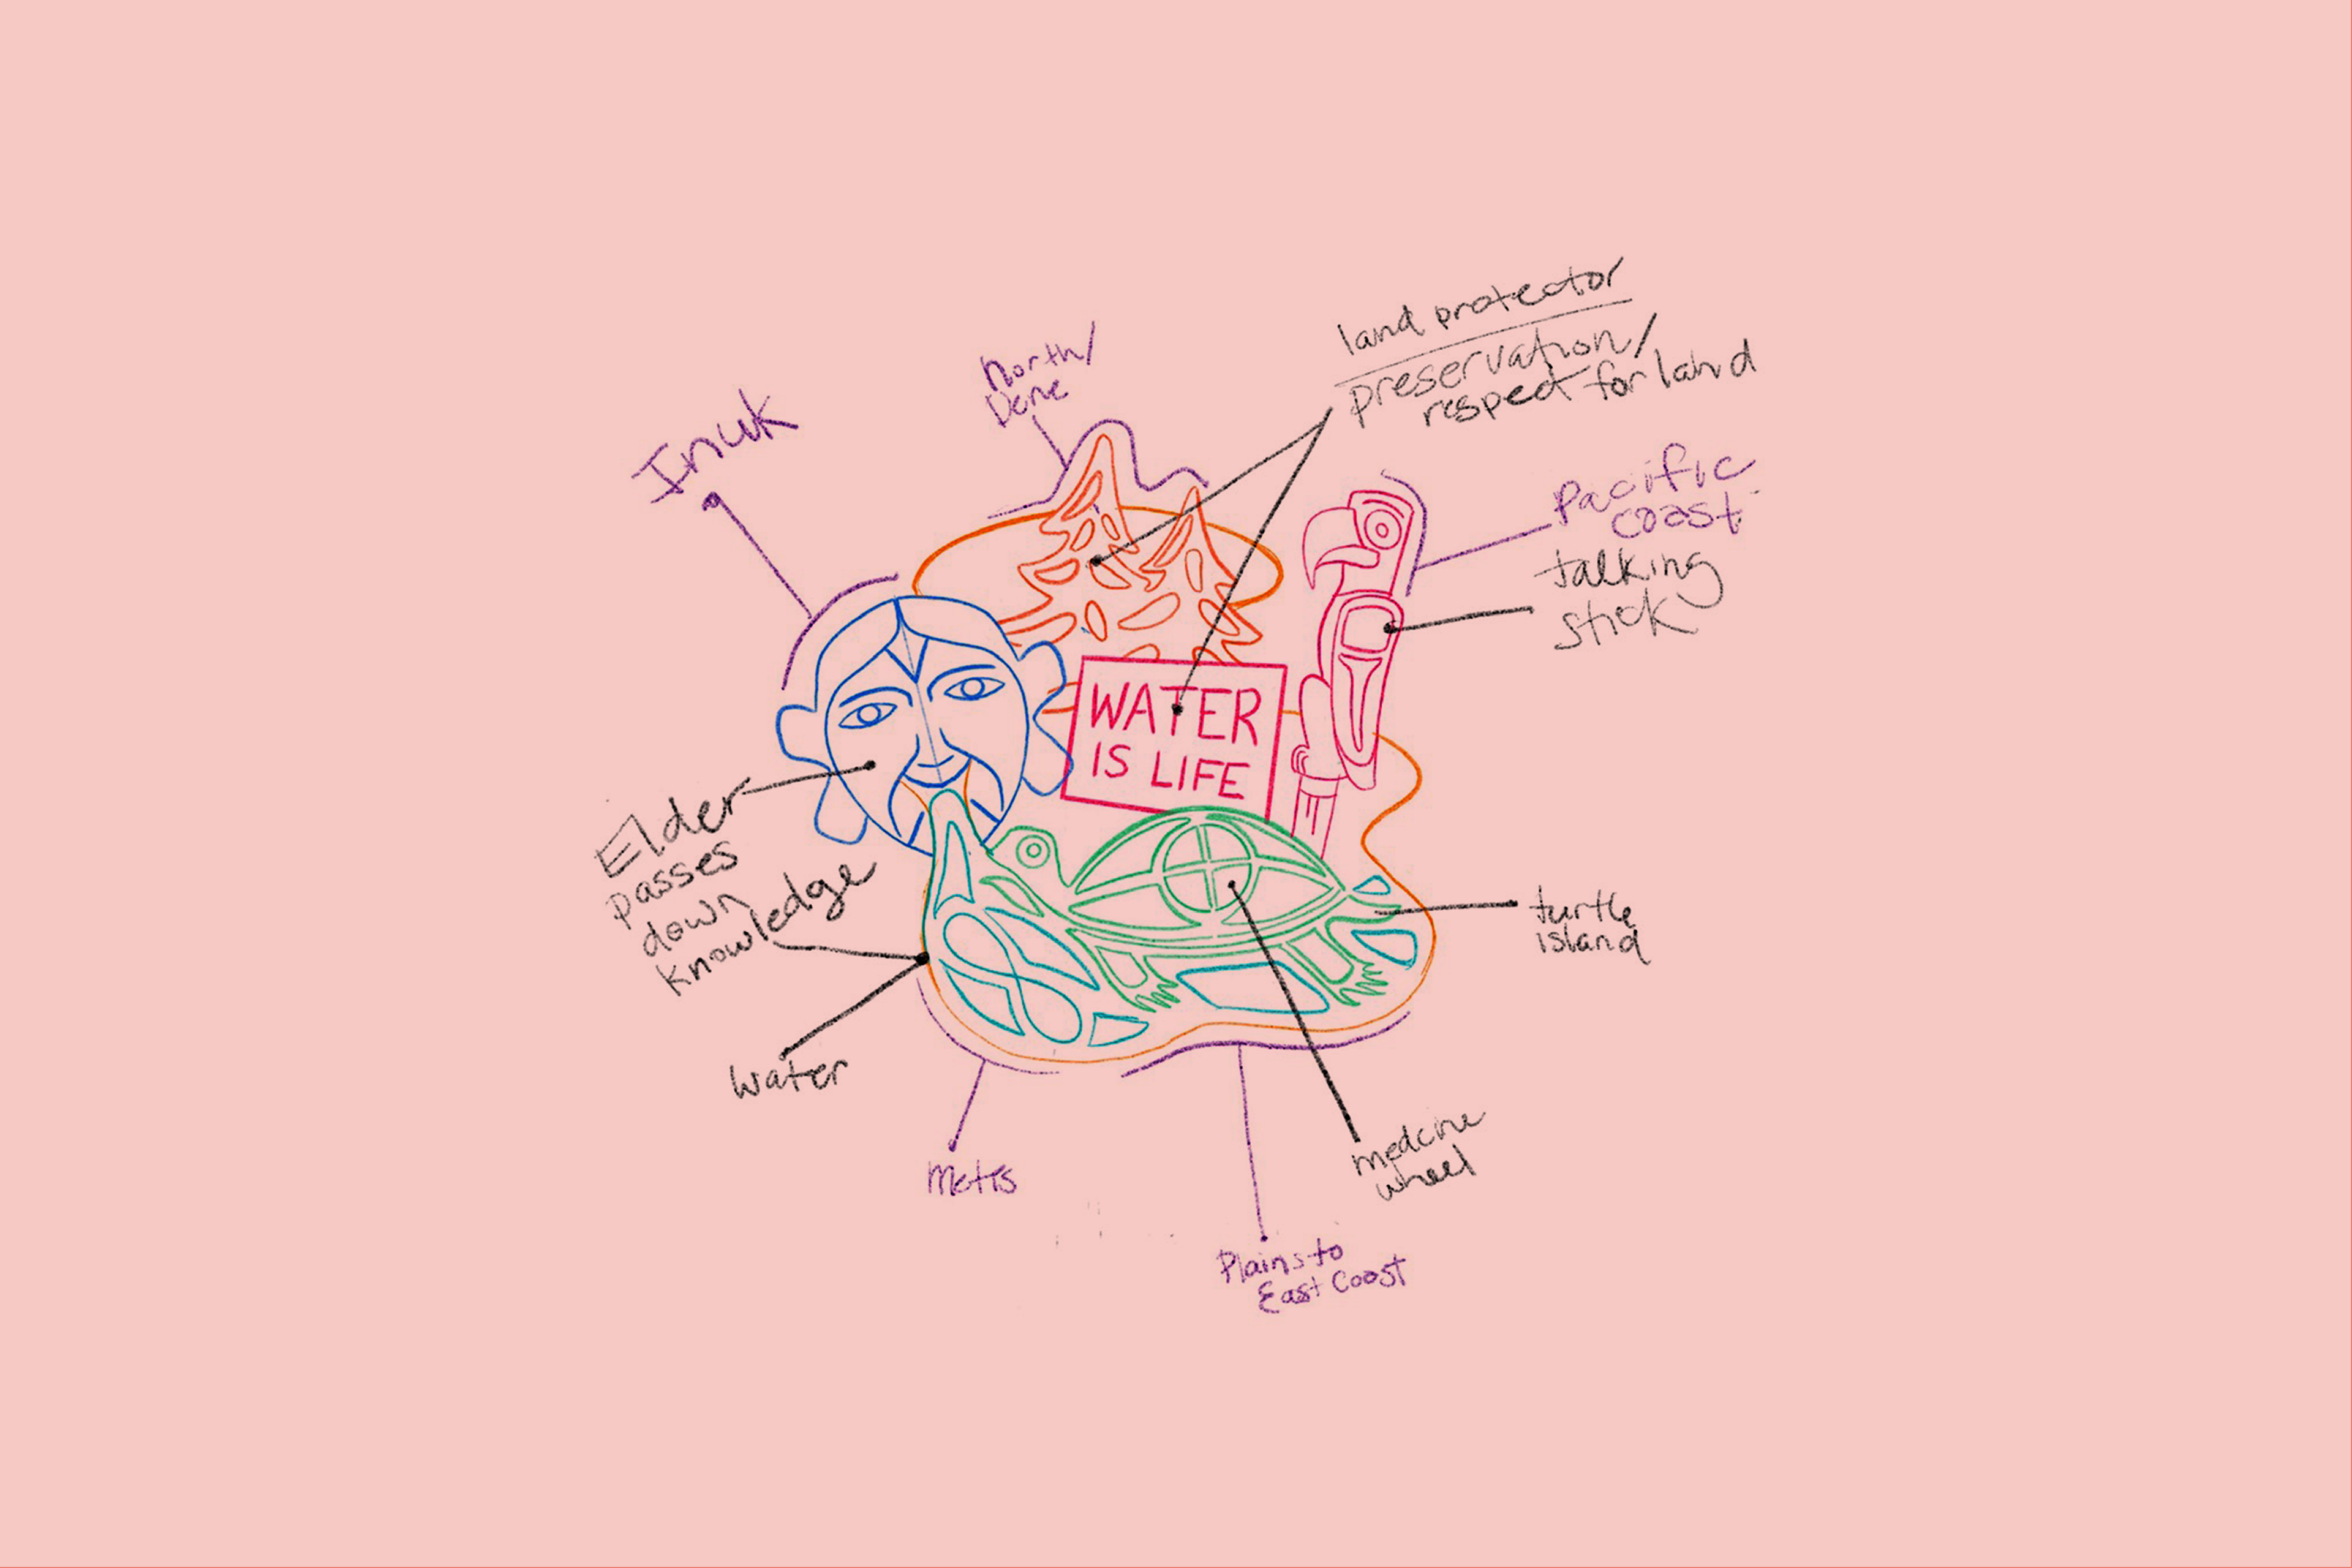 land protector
preservation/
respect for land
North/
Dene
Inuk
Pacific
coast
talking
stick
WATER
IS LIFE
Elder
passes
down
knowledge
turtle
island
water
Metis
medcine
wheel
Plains to
East Coast